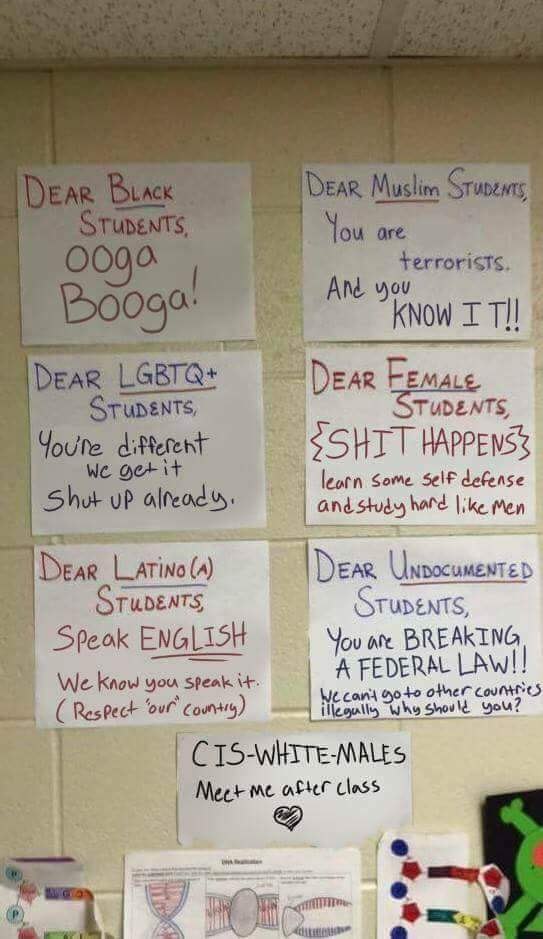 DEAR BLACK
STUDENTS,
OOga
Booga!
DEAR Muslim STUDENTS,
You are
terrorists.
And you
KNOW IT!!
DEAR LGBTQ+
STUDENTS,
You're different
we get it
Shut up already.
DEAR FEMALE
STUDENTS,
{SHIT HAPPENS}
learn some self defense
and study hard like Men
DEAR LATINO(A)
STUDENTS,
Speak ENGLISH
We know you speak it.
(Respect "our" country)
DEAR UNDOCUMENTED
STUDENTS,
You are BREAKING
A FEDERAL LAW!!
We can't go to other countries
illegally why should you?
CIS-WHITE-MALES
Meet me after class
DNA Replication
P
P